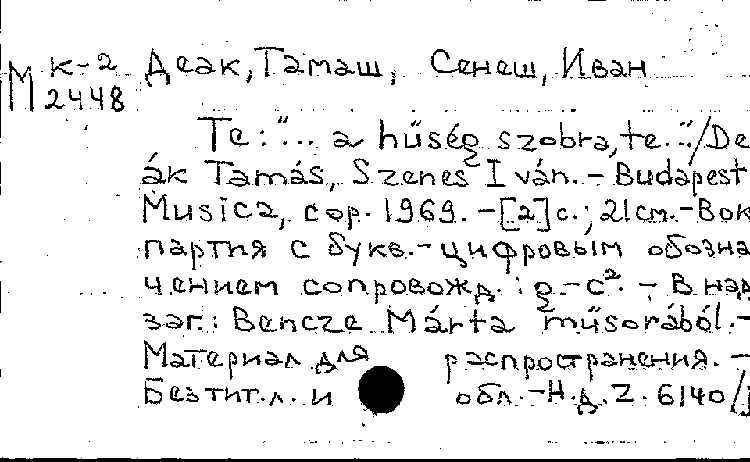 М К-2 Деак, Тамаш, Сенеш, Иван
2448
Te: "... a hűség szobra, te..." / De
ák Tamás, Szenes Iván. - Budapest
Musica, cop. 1969. - [2] с.; 21 см. - Вок
партия с букв.-цифровым обозна
чением сопровожд.: g - c². - В над
заг.: Bencze Márta műsorából. -
Материал для распространения. -
Без тит. л. и обл. - Н.д. Z. 6140/